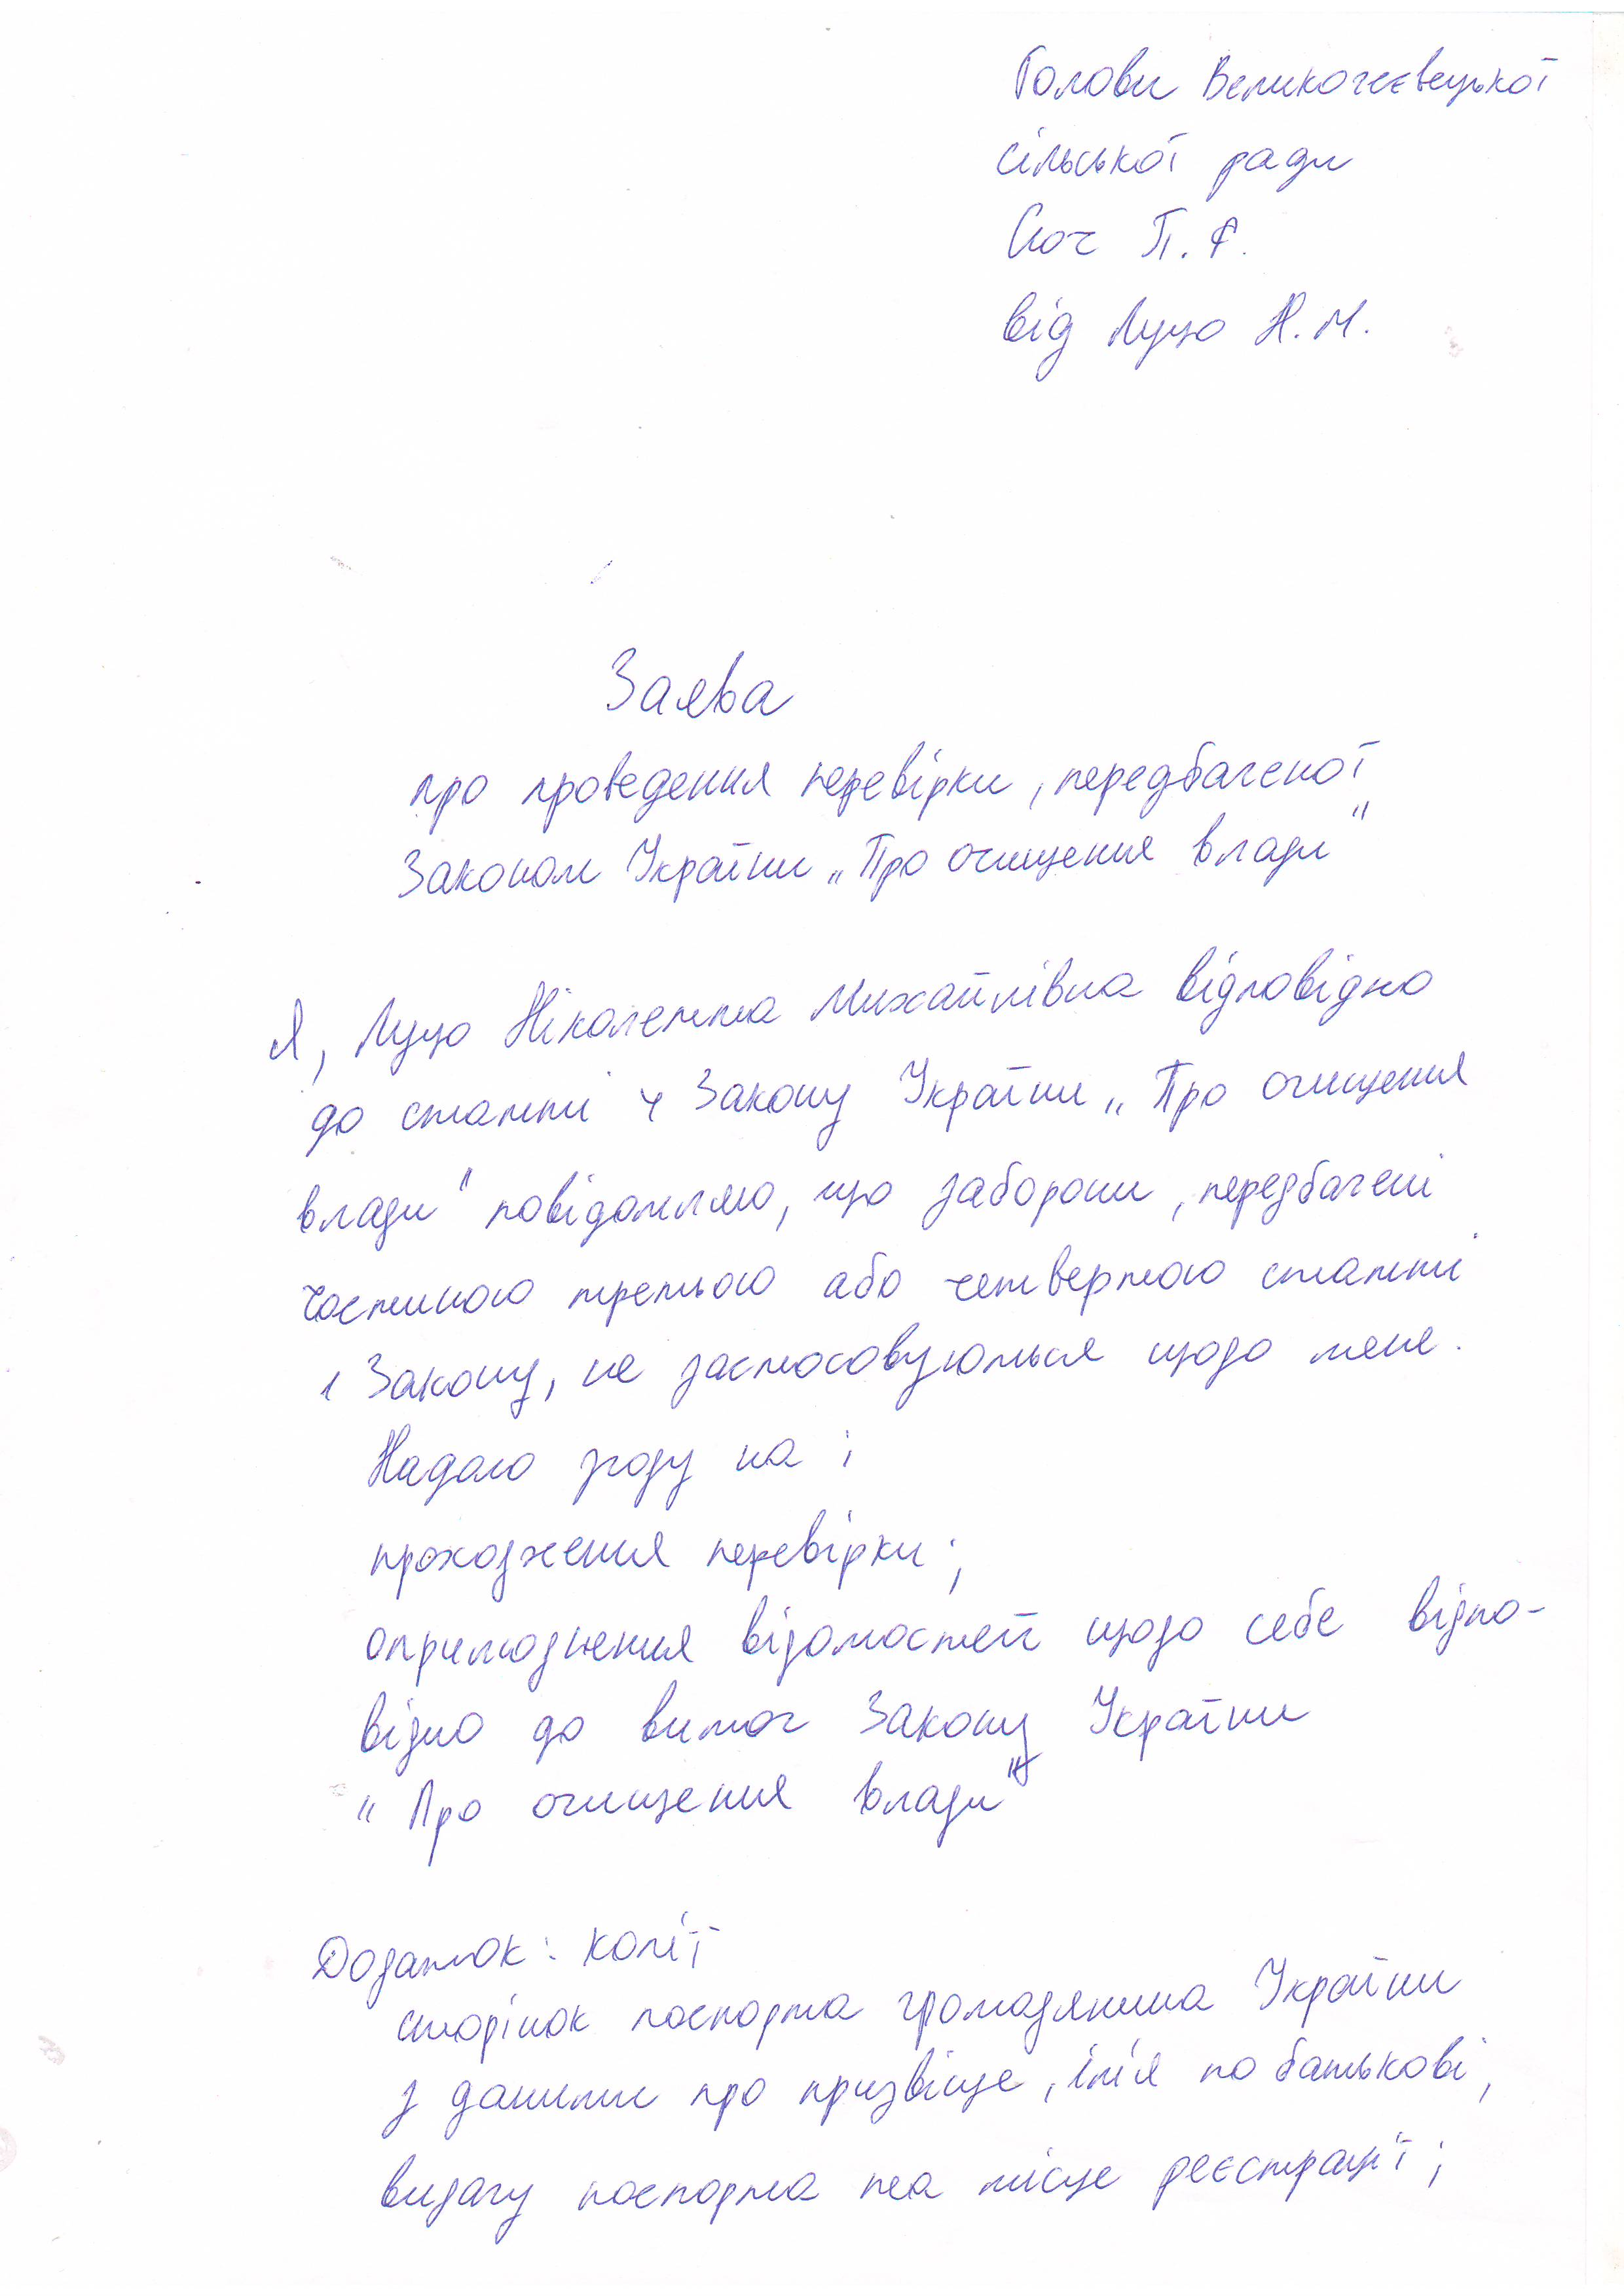 Голови Великогеєвецької
сільської ради
Соч П. Ф.
від Луцо Н. М.
Заява
про проведення перевірки, передбаченої
Законом України „Про очищення влади"
Я, Луцо Ніколетта Михайлівна відповідно
до статті 4 Закону України „Про очищення
влади" повідомляю, що заборони, передбачені
частиною третьою або четвертою статті
1 Закону, не застосовуються щодо мене.
Надаю згоду на :
проходження перевірки;
оприлюднення відомостей щодо себе відпо-
відно до вимог Закону України
"Про очищення влади"
Додаток: копії
сторінок паспорта громадянина України
з даними про прізвіще, ім'я по батькові,
видачу паспорта та місце реєстрації;